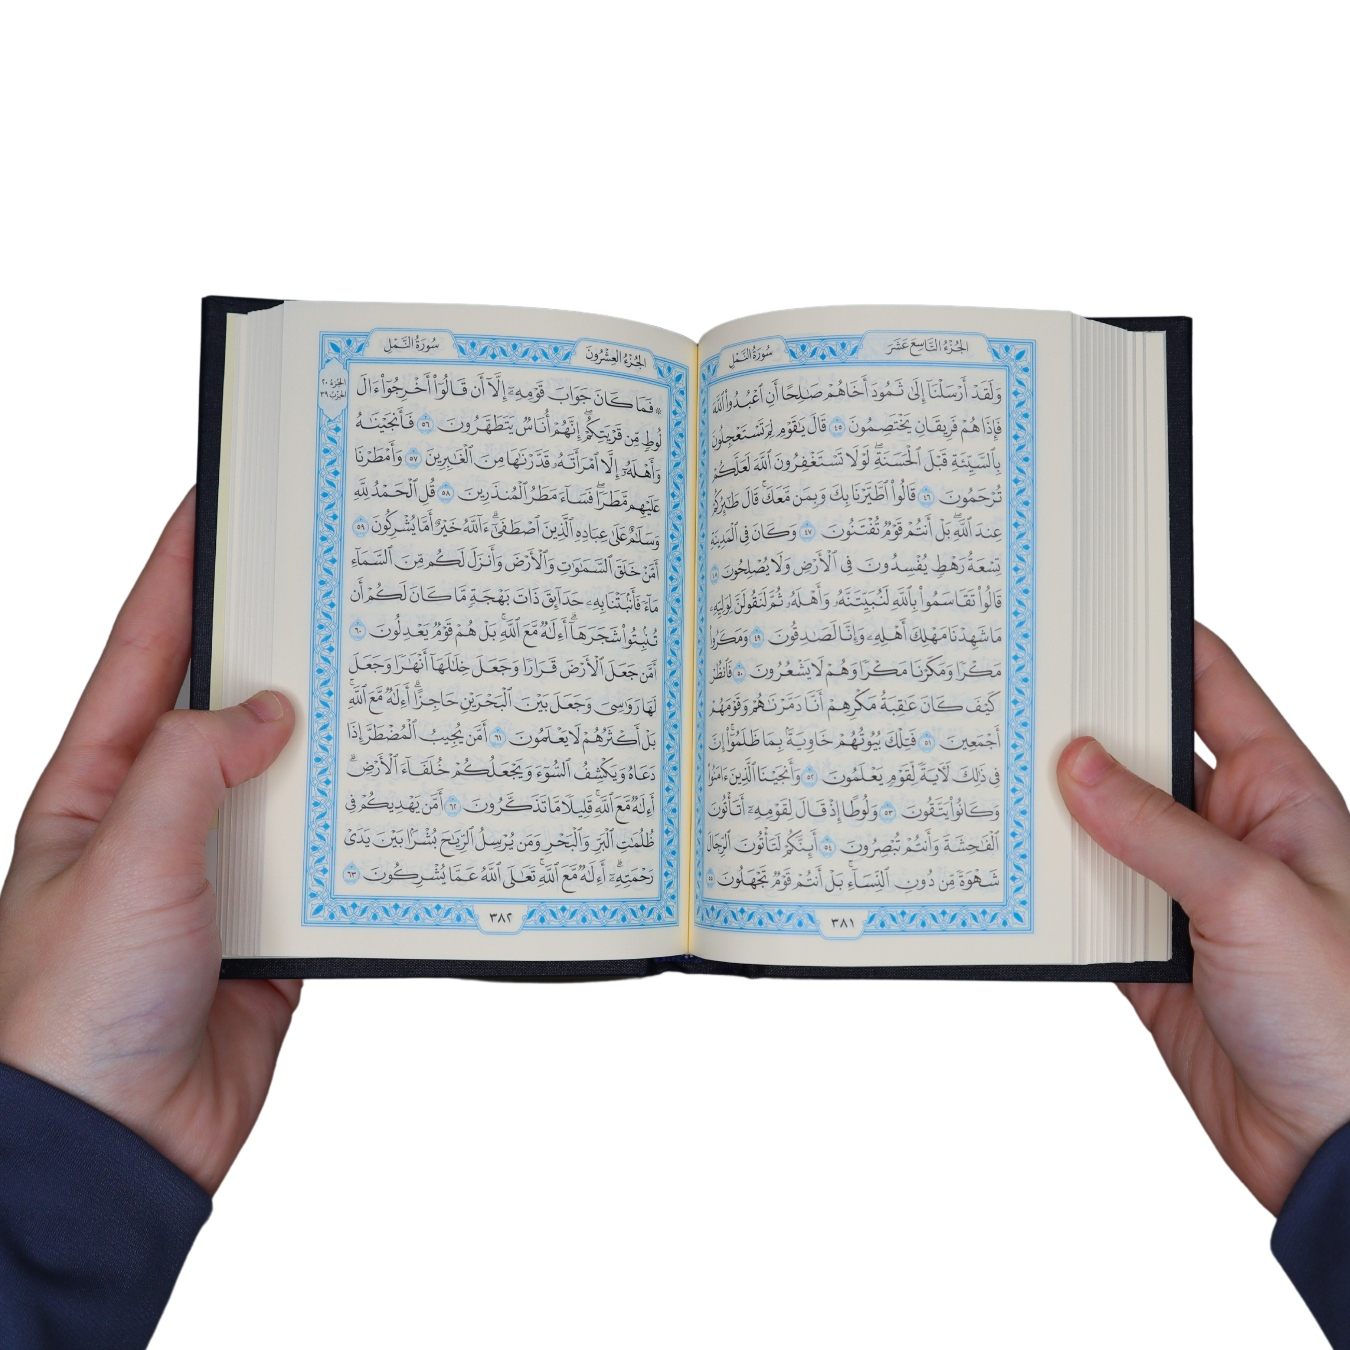 الجزء التاسع عشر
سورة النمل
وَلَقَدْ أَرْسَلْنَآ إِلَىٰ ثَمُودَ أَخَاهُمْ صَٰلِحًا أَنِ ٱعْبُدُوا۟ ٱللَّهَ
فَإِذَا هُمْ فَرِيقَانِ يَخْتَصِمُونَ ٤٥ قَالَ يَٰقَوْمِ لِمَ تَسْتَعْجِلُونَ
بِٱلسَّيِّئَةِ قَبْلَ ٱلْحَسَنَةِ ۖ لَوْلَا تَسْتَغْفِرُونَ ٱللَّهَ لَعَلَّكُمْ
تُرْحَمُونَ ٤٦ قَالُوا۟ ٱطَّيَّرْنَا بِكَ وَبِمَن مَّعَكَ ۚ قَالَ طَٰٓئِرُكُمْ
عِندَ ٱللَّهِ ۖ بَلْ أَنتُمْ قَوْمٌ تُفْتَنُونَ ٤٧ وَكَانَ فِى ٱلْمَدِينَةِ
تِسْعَةُ رَهْطٍ يُفْسِدُونَ فِى ٱلْأَرْضِ وَلَا يُصْلِحُونَ ٤٨
قَالُوا۟ تَقَاسَمُوا۟ بِٱللَّهِ لَنُبَيِّتَنَّهُۥ وَأَهْلَهُۥ ثُمَّ لَنَقُولَنَّ لِوَلِيِّهِۦ
مَا شَهِدْنَا مَهْلِكَ أَهْلِهِۦ وَإِنَّا لَصَٰدِقُونَ ٤٩ وَمَكَرُوا۟
مَكْرًا وَمَكَرْنَا مَكْرًا وَهُمْ لَا يَشْعُرُونَ ٥٠ فَٱنظُرْ
كَيْفَ كَانَ عَٰقِبَةُ مَكْرِهِمْ أَنَّا دَمَّرْنَٰهُمْ وَقَوْمَهُمْ
أَجْمَعِينَ ٥١ فَتِلْكَ بُيُوتُهُمْ خَاوِيَةًۢ بِمَا ظَلَمُوٓا۟ ۗ إِنَّ
فِى ذَٰلِكَ لَءَايَةً لِّقَوْمٍ يَعْلَمُونَ ٥٢ وَأَنجَيْنَا ٱلَّذِينَ ءَامَنُوا۟
وَكَانُوا۟ يَتَّقُونَ ٥٣ وَلُوطًا إِذْ قَالَ لِقَوْمِهِۦٓ أَتَأْتُونَ
ٱلْفَٰحِشَةَ وَأَنتُمْ تُبْصِرُونَ ٥٤ أَئِنَّكُمْ لَتَأْتُونَ ٱلرِّجَالَ
شَهْوَةً مِّن دُونِ ٱلنِّسَآءِ ۚ بَلْ أَنتُمْ قَوْمٌ تَجْهَلُونَ ٥٥
٣٨١
الجزء العشرون
سورة النمل
الجزء ٢٠
الحزب ٣٩
۞ فَمَا كَانَ جَوَابَ قَوْمِهِۦٓ إِلَّآ أَن قَالُوٓا۟ أَخْرِجُوٓا۟ ءَالَ
لُوطٍ مِّن قَرْيَتِكُمْ ۖ إِنَّهُمْ أُنَاسٌ يَتَطَهَّرُونَ ٥٦ فَأَنجَيْنَٰهُ
وَأَهْلَهُۥٓ إِلَّا ٱمْرَأَتَهُۥ قَدَّرْنَٰهَا مِنَ ٱلْغَٰبِرِينَ ٥٧ وَأَمْطَرْنَا
عَلَيْهِم مَّطَرًا ۖ فَسَآءَ مَطَرُ ٱلْمُنذَرِينَ ٥٨ قُلِ ٱلْحَمْدُ لِلَّهِ
وَسَلَٰمٌ عَلَىٰ عِبَادِهِ ٱلَّذِينَ ٱصْطَفَىٰٓ ۗ ءَآللَّهُ خَيْرٌ أَمَّا يُشْرِكُونَ ٥٩
أَمَّنْ خَلَقَ ٱلسَّمَٰوَٰتِ وَٱلْأَرْضَ وَأَنزَلَ لَكُم مِّنَ ٱلسَّمَآءِ
مَآءً فَأَنۢبَتْنَا بِهِۦ حَدَآئِقَ ذَاتَ بَهْجَةٍ مَّا كَانَ لَكُمْ أَن
تُنۢبِتُوا۟ شَجَرَهَآ ۗ أَءِلَٰهٌ مَّعَ ٱللَّهِ ۚ بَلْ هُمْ قَوْمٌ يَعْدِلُونَ ٦٠
أَمَّن جَعَلَ ٱلْأَرْضَ قَرَارًا وَجَعَلَ خِلَٰلَهَآ أَنْهَٰرًا وَجَعَلَ
لَهَا رَوَٰسِىَ وَجَعَلَ بَيْنَ ٱلْبَحْرَيْنِ حَاجِزًا ۗ أَءِلَٰهٌ مَّعَ ٱللَّهِ ۚ
بَلْ أَكْثَرُهُمْ لَا يَعْلَمُونَ ٦١ أَمَّن يُجِيبُ ٱلْمُضْطَرَّ إِذَا
دَعَاهُ وَيَكْشِفُ ٱلسُّوٓءَ وَيَجْعَلُكُمْ خُلَفَآءَ ٱلْأَرْضِ ۗ
أَءِلَٰهٌ مَّعَ ٱللَّهِ ۚ قَلِيلًا مَّا تَذَكَّرُونَ ٦٢ أَمَّن يَهْدِيكُمْ فِى
ظُلُمَٰتِ ٱلْبَرِّ وَٱلْبَحْرِ وَمَن يُرْسِلُ ٱلرِّيَٰحَ بُشْرًۢا بَيْنَ يَدَىْ
رَحْمَتِهِۦٓ ۗ أَءِلَٰهٌ مَّعَ ٱللَّهِ ۚ تَعَٰلَى ٱللَّهُ عَمَّا يُشْرِكُونَ ٦٣
٣٨٢